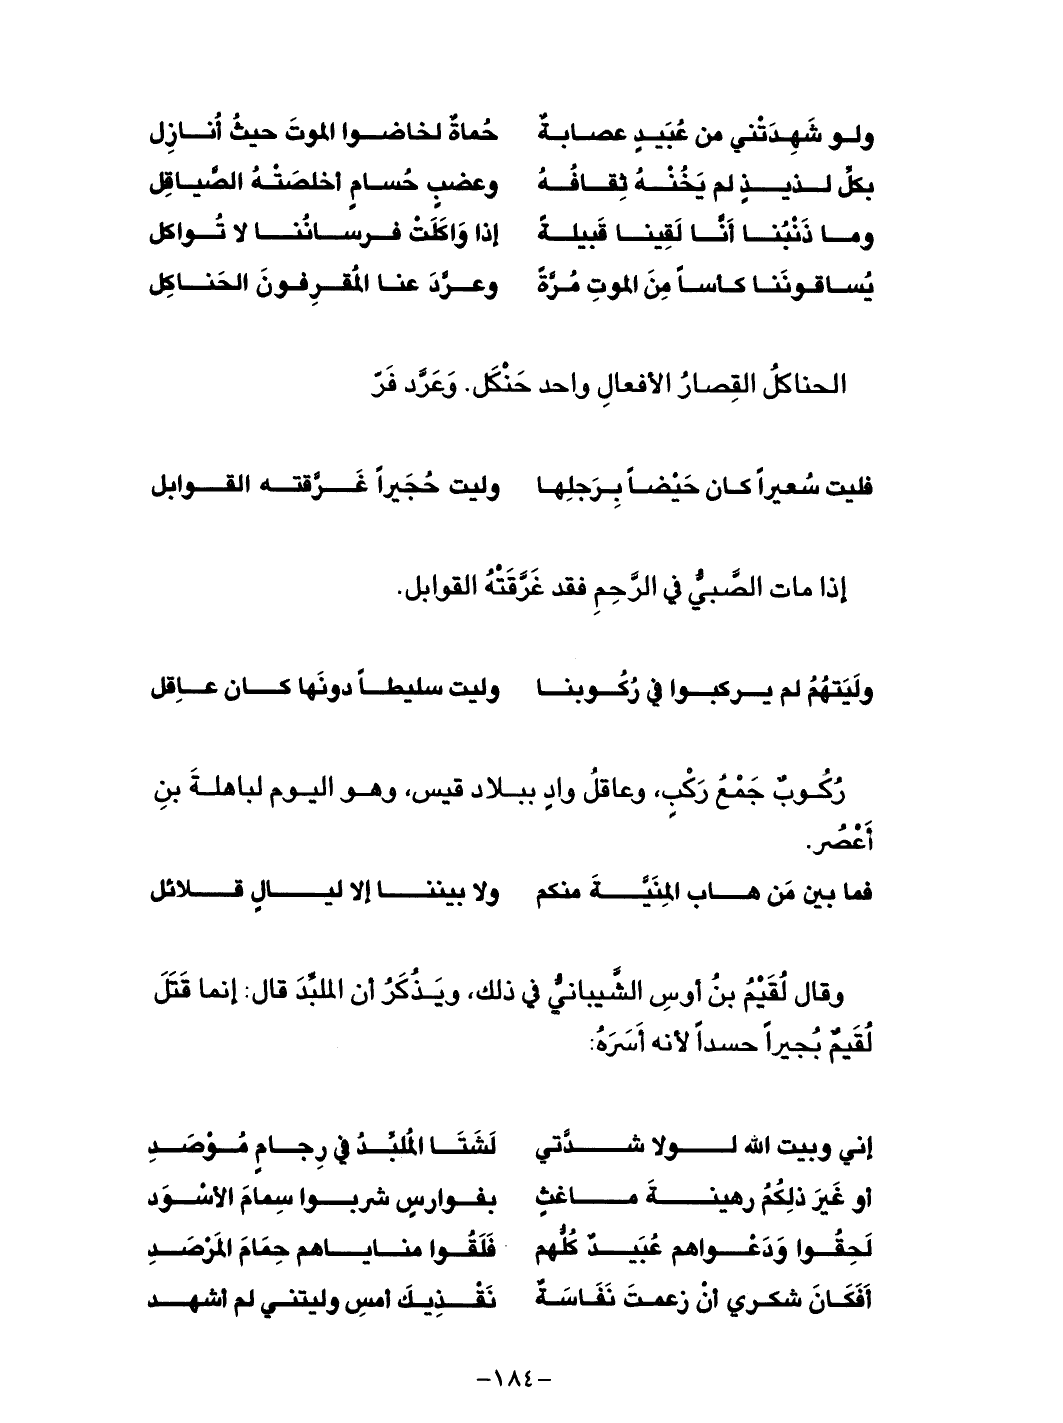 ولو شَهِدَتْني من عُبَيدٍ عصابةٌ حُماةٌ لخاضوا الموتَ حيثُ أُنازِل
بكلِّ لذيذٍ لم يَخُنْهُ ثِقافُهُ وعضبٍ حُسامٍ أخلصَتْهُ الصَّياقِل
وما ذَنْبُنا أنَّا لَقِينا قَبيلةً إذا وَاكَلَتْ فرسانُنا لا تُواكل
يُساقونَنا كأساً مِنَ الموتِ مُرَّةً وعرَّدَ عنا المُقرِفونَ الحَناكِل
الحناكلُ القِصارُ الأفعالِ واحد حَنْكَل. وَعَرَّد فَرّ
فليت سُعيراً كان حَيْضاً بِرَجلِها وليت حُجَيراً غَرَّقته القوابل
إذا مات الصَّبيُّ في الرَّحِمِ فقد غَرَّقَتْهُ القوابل.
ولَيَتهُمُ لم يركبوا في رُكُوبنا وليت سليطاً دونَها كان عاقِل
رُكُوبٌ جَمْعُ رَكْبٍ، وعاقلُ وادٍ ببلاد قيس، وهو اليوم لباهلةَ بنِ
أَعْصُر.
فما بين مَن هاب المِنَيَّةَ منكم ولا بيننا إلا ليالٍ قلائل
وقال لُقَيْمُ بنُ أوسِ الشَّيبانيُّ في ذلك، ويَذُكَرُ أن الملبِّدَ قال: إنما قَتَلَ
لُقَيمٌ بُجيراً حسداً لأنه أَسَرَهُ:
إني وبيت الله لولا شدَّتي لَشَتَا المُلبِّدُ في رِجامٍ مُوْصَدِ
أو غَيرَ ذلِكُمُ رهينةَ ماغثٍ بفوارسٍ شربوا سِمامَ الأسْوَد
لَحِقُوا وَدَعْواهم عُبَيدٌ كُلُّهم فَلَقُوا مناياهم حِمَامَ المَرْصَدِ
أَفَكَانَ شكري أنْ زعمتَ نَفَاسَةٌ نَقْذِيكَ أمسِ وليتني لم أشهد
-١٨٤-